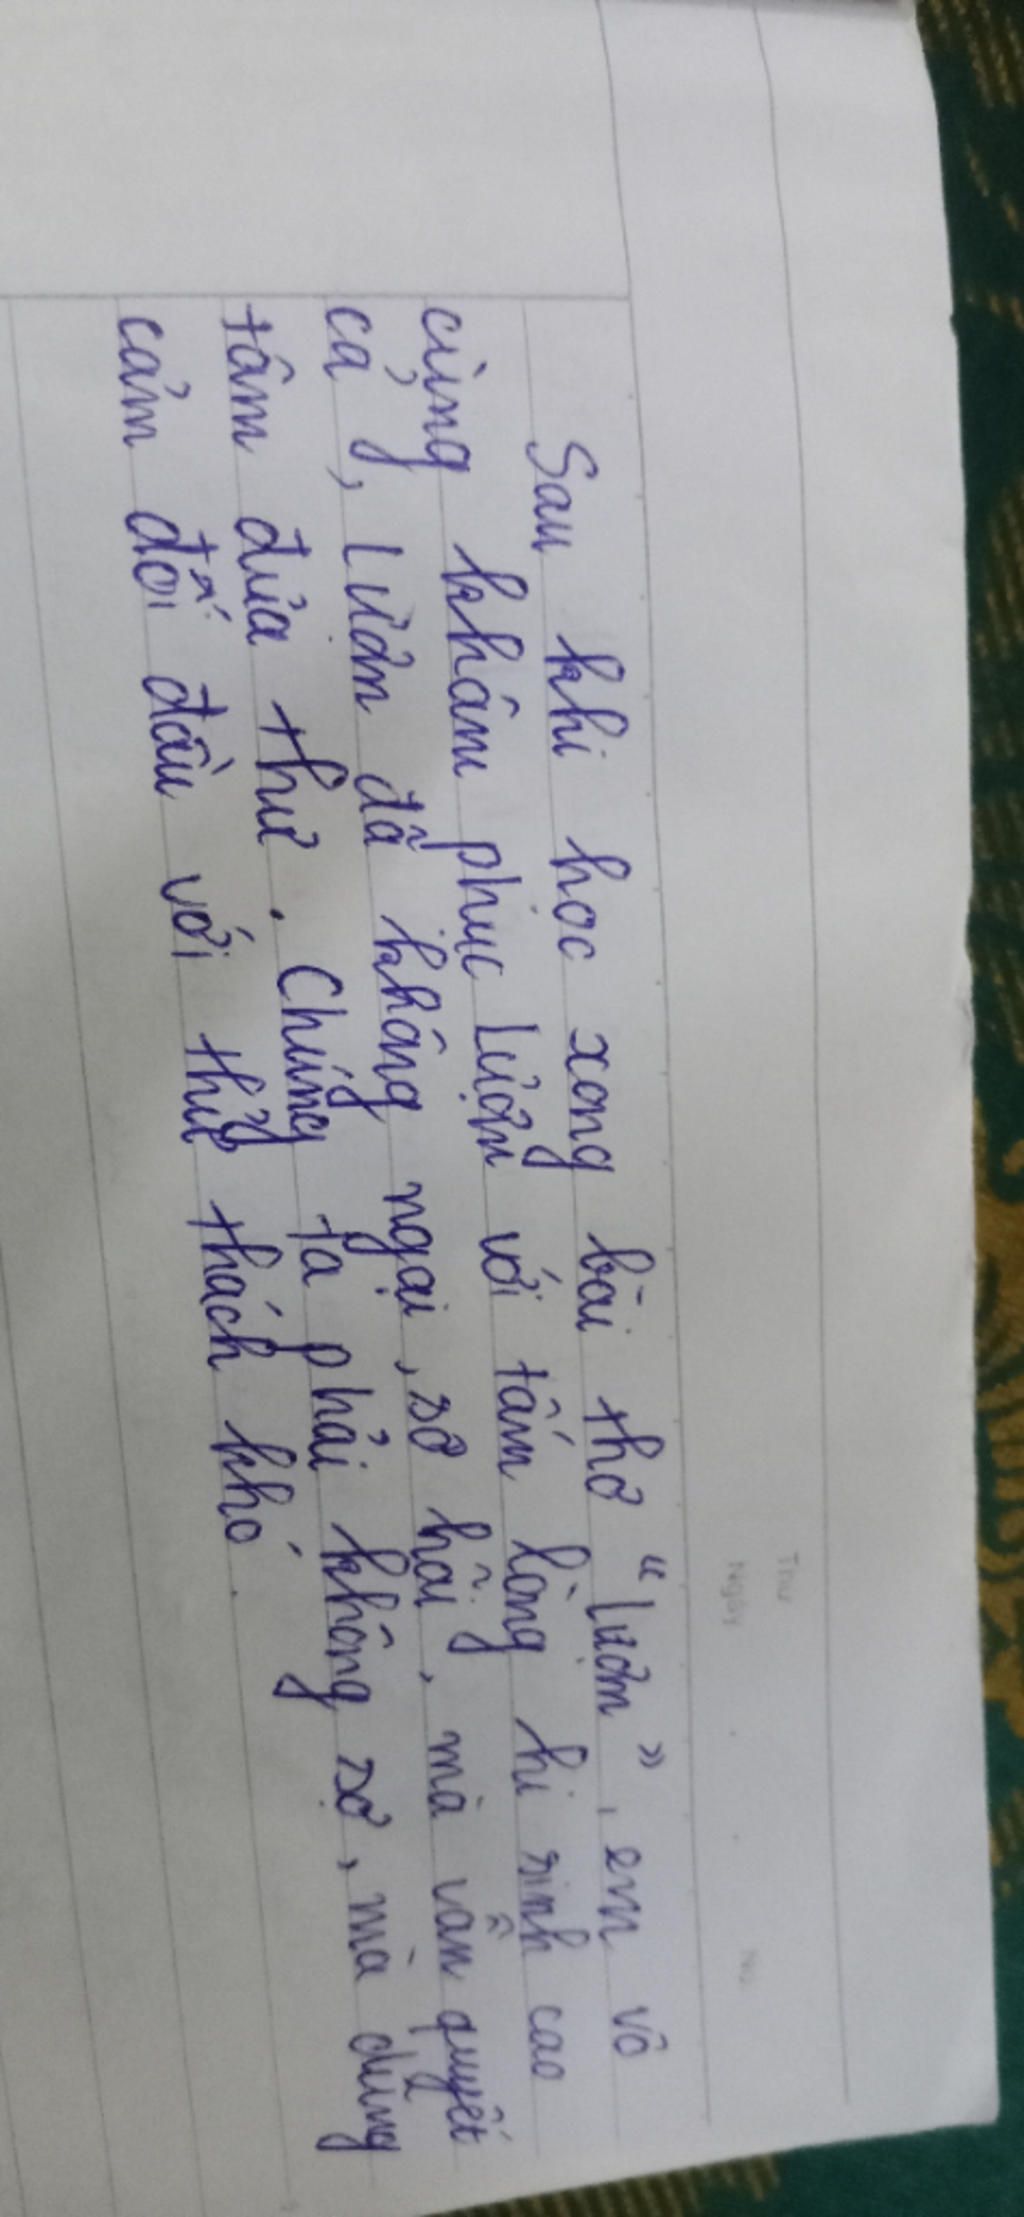 Sau khi học xong bài thơ "Lượm", em vô
cùng khâm phục Lượm với tấm lòng hi sinh cao
cả, Lượm đã không ngại, sợ hãi, mà vẫn quyết
tâm đưa thư. Chúng ta phải không sợ, mà dũng
cảm đối đầu với thử thách khó.
Thứ
Ngày
No.